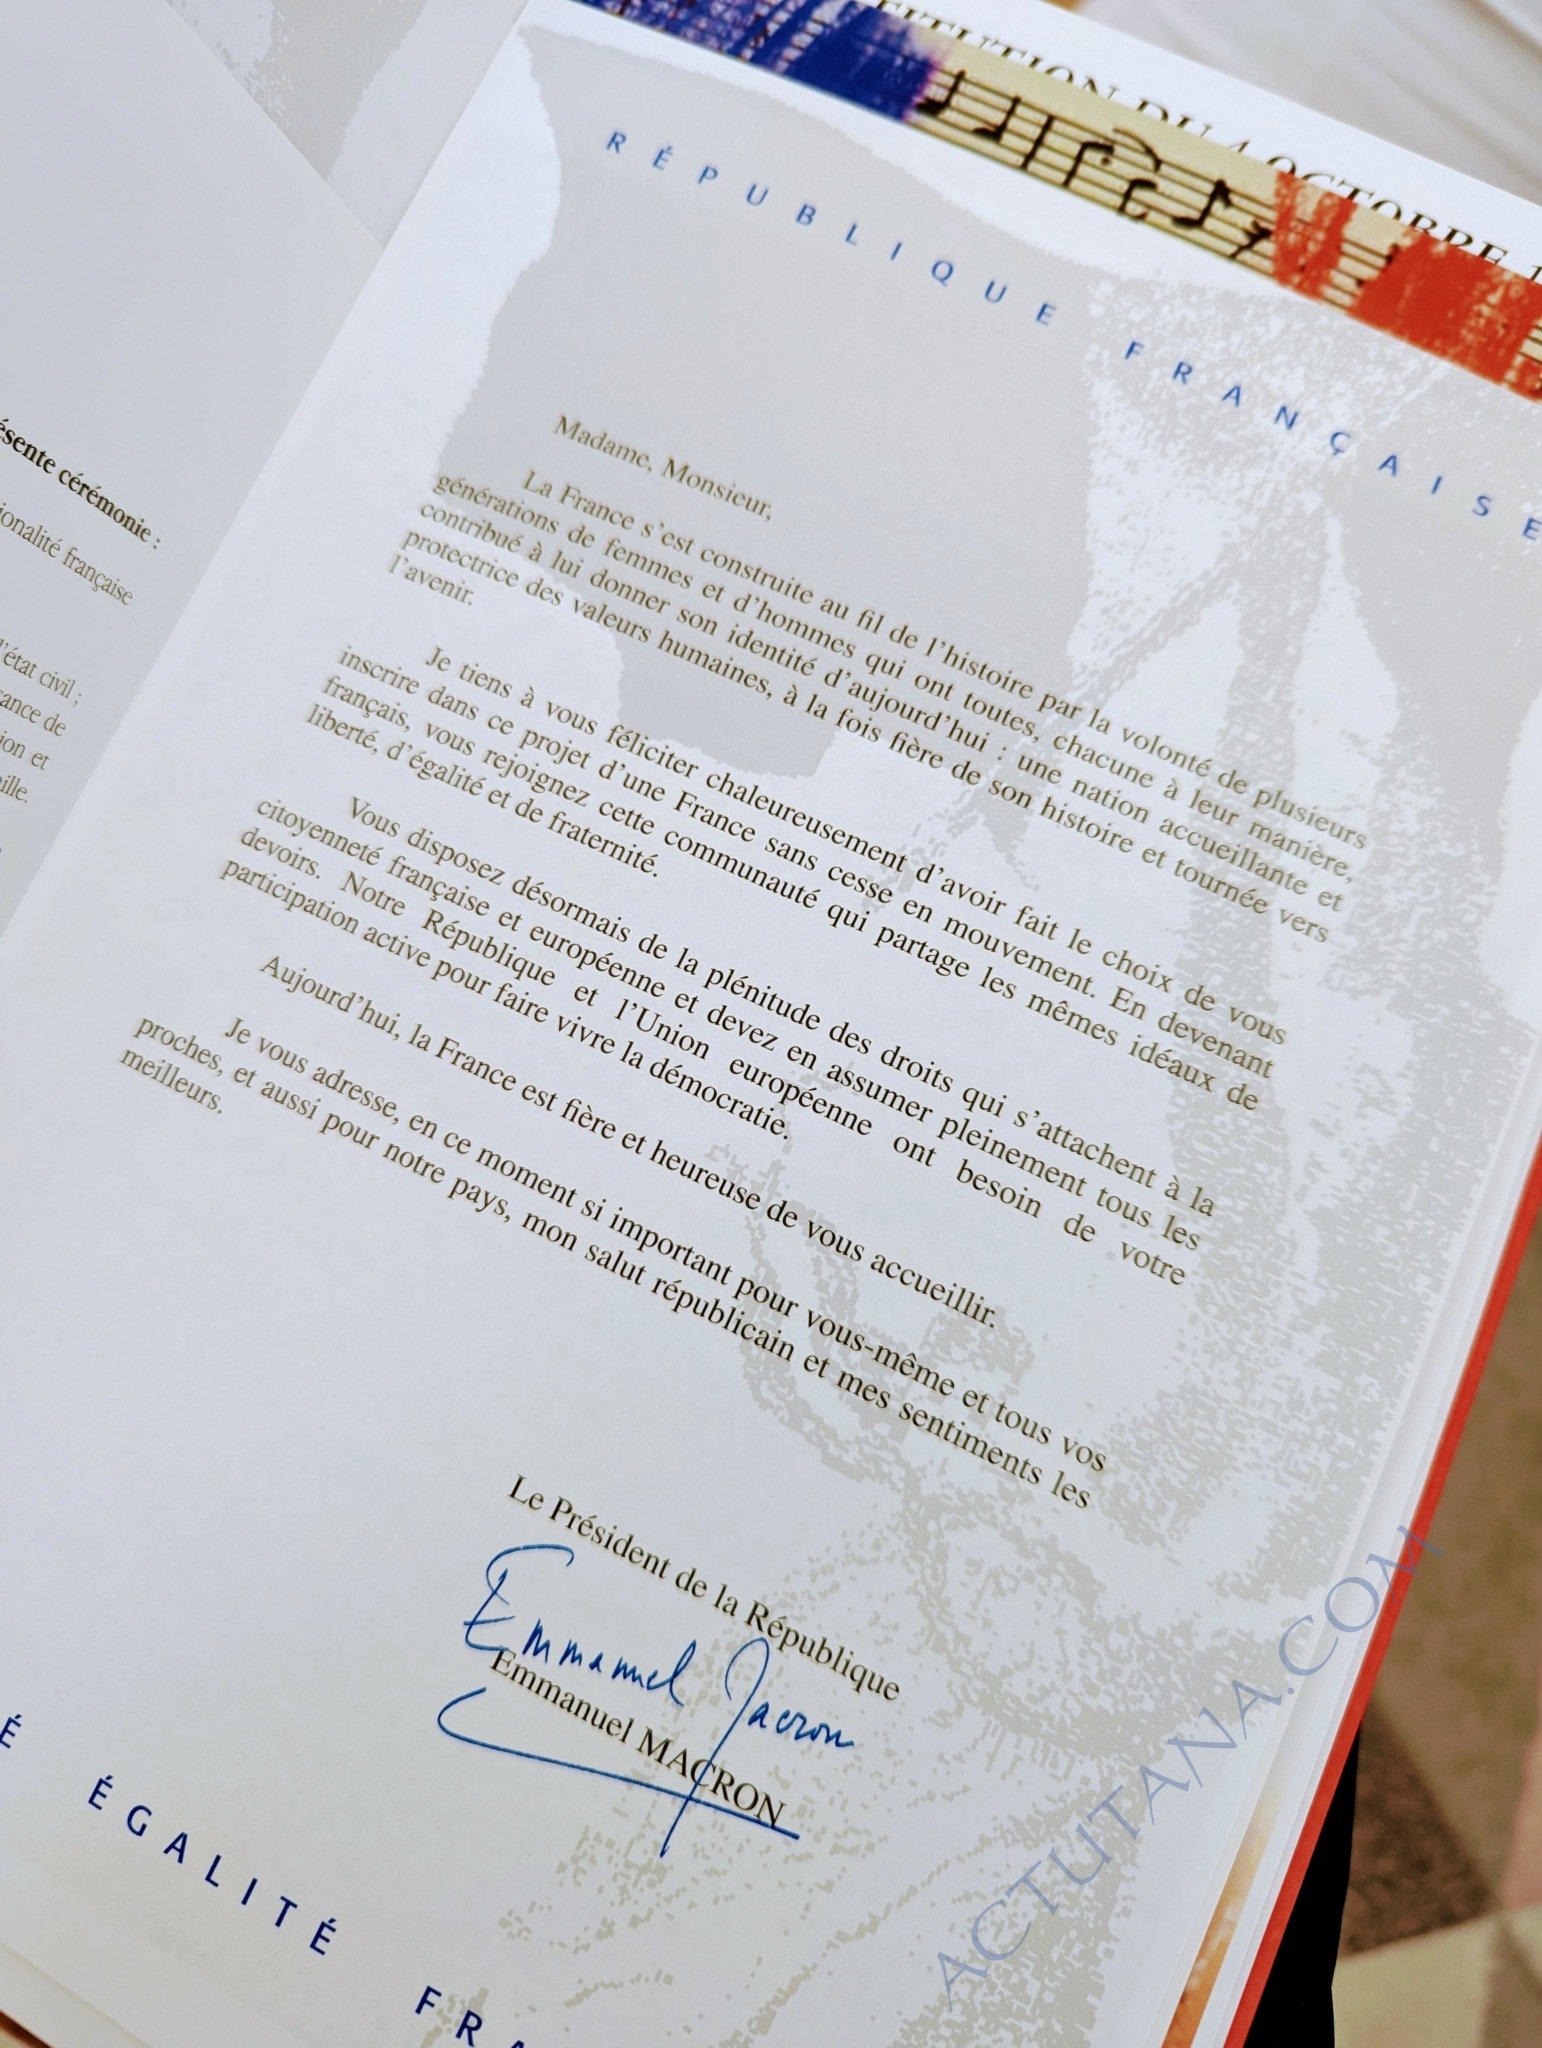 ITUTION DU 4 OCTOBRE 1
RÉPUBLIQUE FRANÇAISE
ésente cérémonie :
ionalité française
l'état civil ;
ance de
ion et
ille.
Madame, Monsieur,
La France s'est construite au fil de l'histoire par la volonté de plusieurs
générations de femmes et d'hommes qui ont toutes, chacune à leur manière,
contribué à lui donner son identité d'aujourd'hui : une nation accueillante et
protectrice des valeurs humaines, à la fois fière de son histoire et tournée vers
l'avenir.
Je tiens à vous féliciter chaleureusement d'avoir fait le choix de vous
inscrire dans ce projet d'une France sans cesse en mouvement. En devenant
français, vous rejoignez cette communauté qui partage les mêmes idéaux de
liberté, d'égalité et de fraternité.
Vous disposez désormais de la plénitude des droits qui s'attachent à la
citoyenneté française et européenne et devez en assumer pleinement tous les
devoirs. Notre République et l'Union européenne ont besoin de votre
participation active pour faire vivre la démocratie.
Aujourd'hui, la France est fière et heureuse de vous accueillir.
Je vous adresse, en ce moment si important pour vous-même et tous vos
proches, et aussi pour notre pays, mon salut républicain et mes sentiments les
meilleurs.
Le Président de la République
Emmanuel Macron
Emmanuel MACRON
É ÉGALITÉ FRA
ACTUTANA.COM